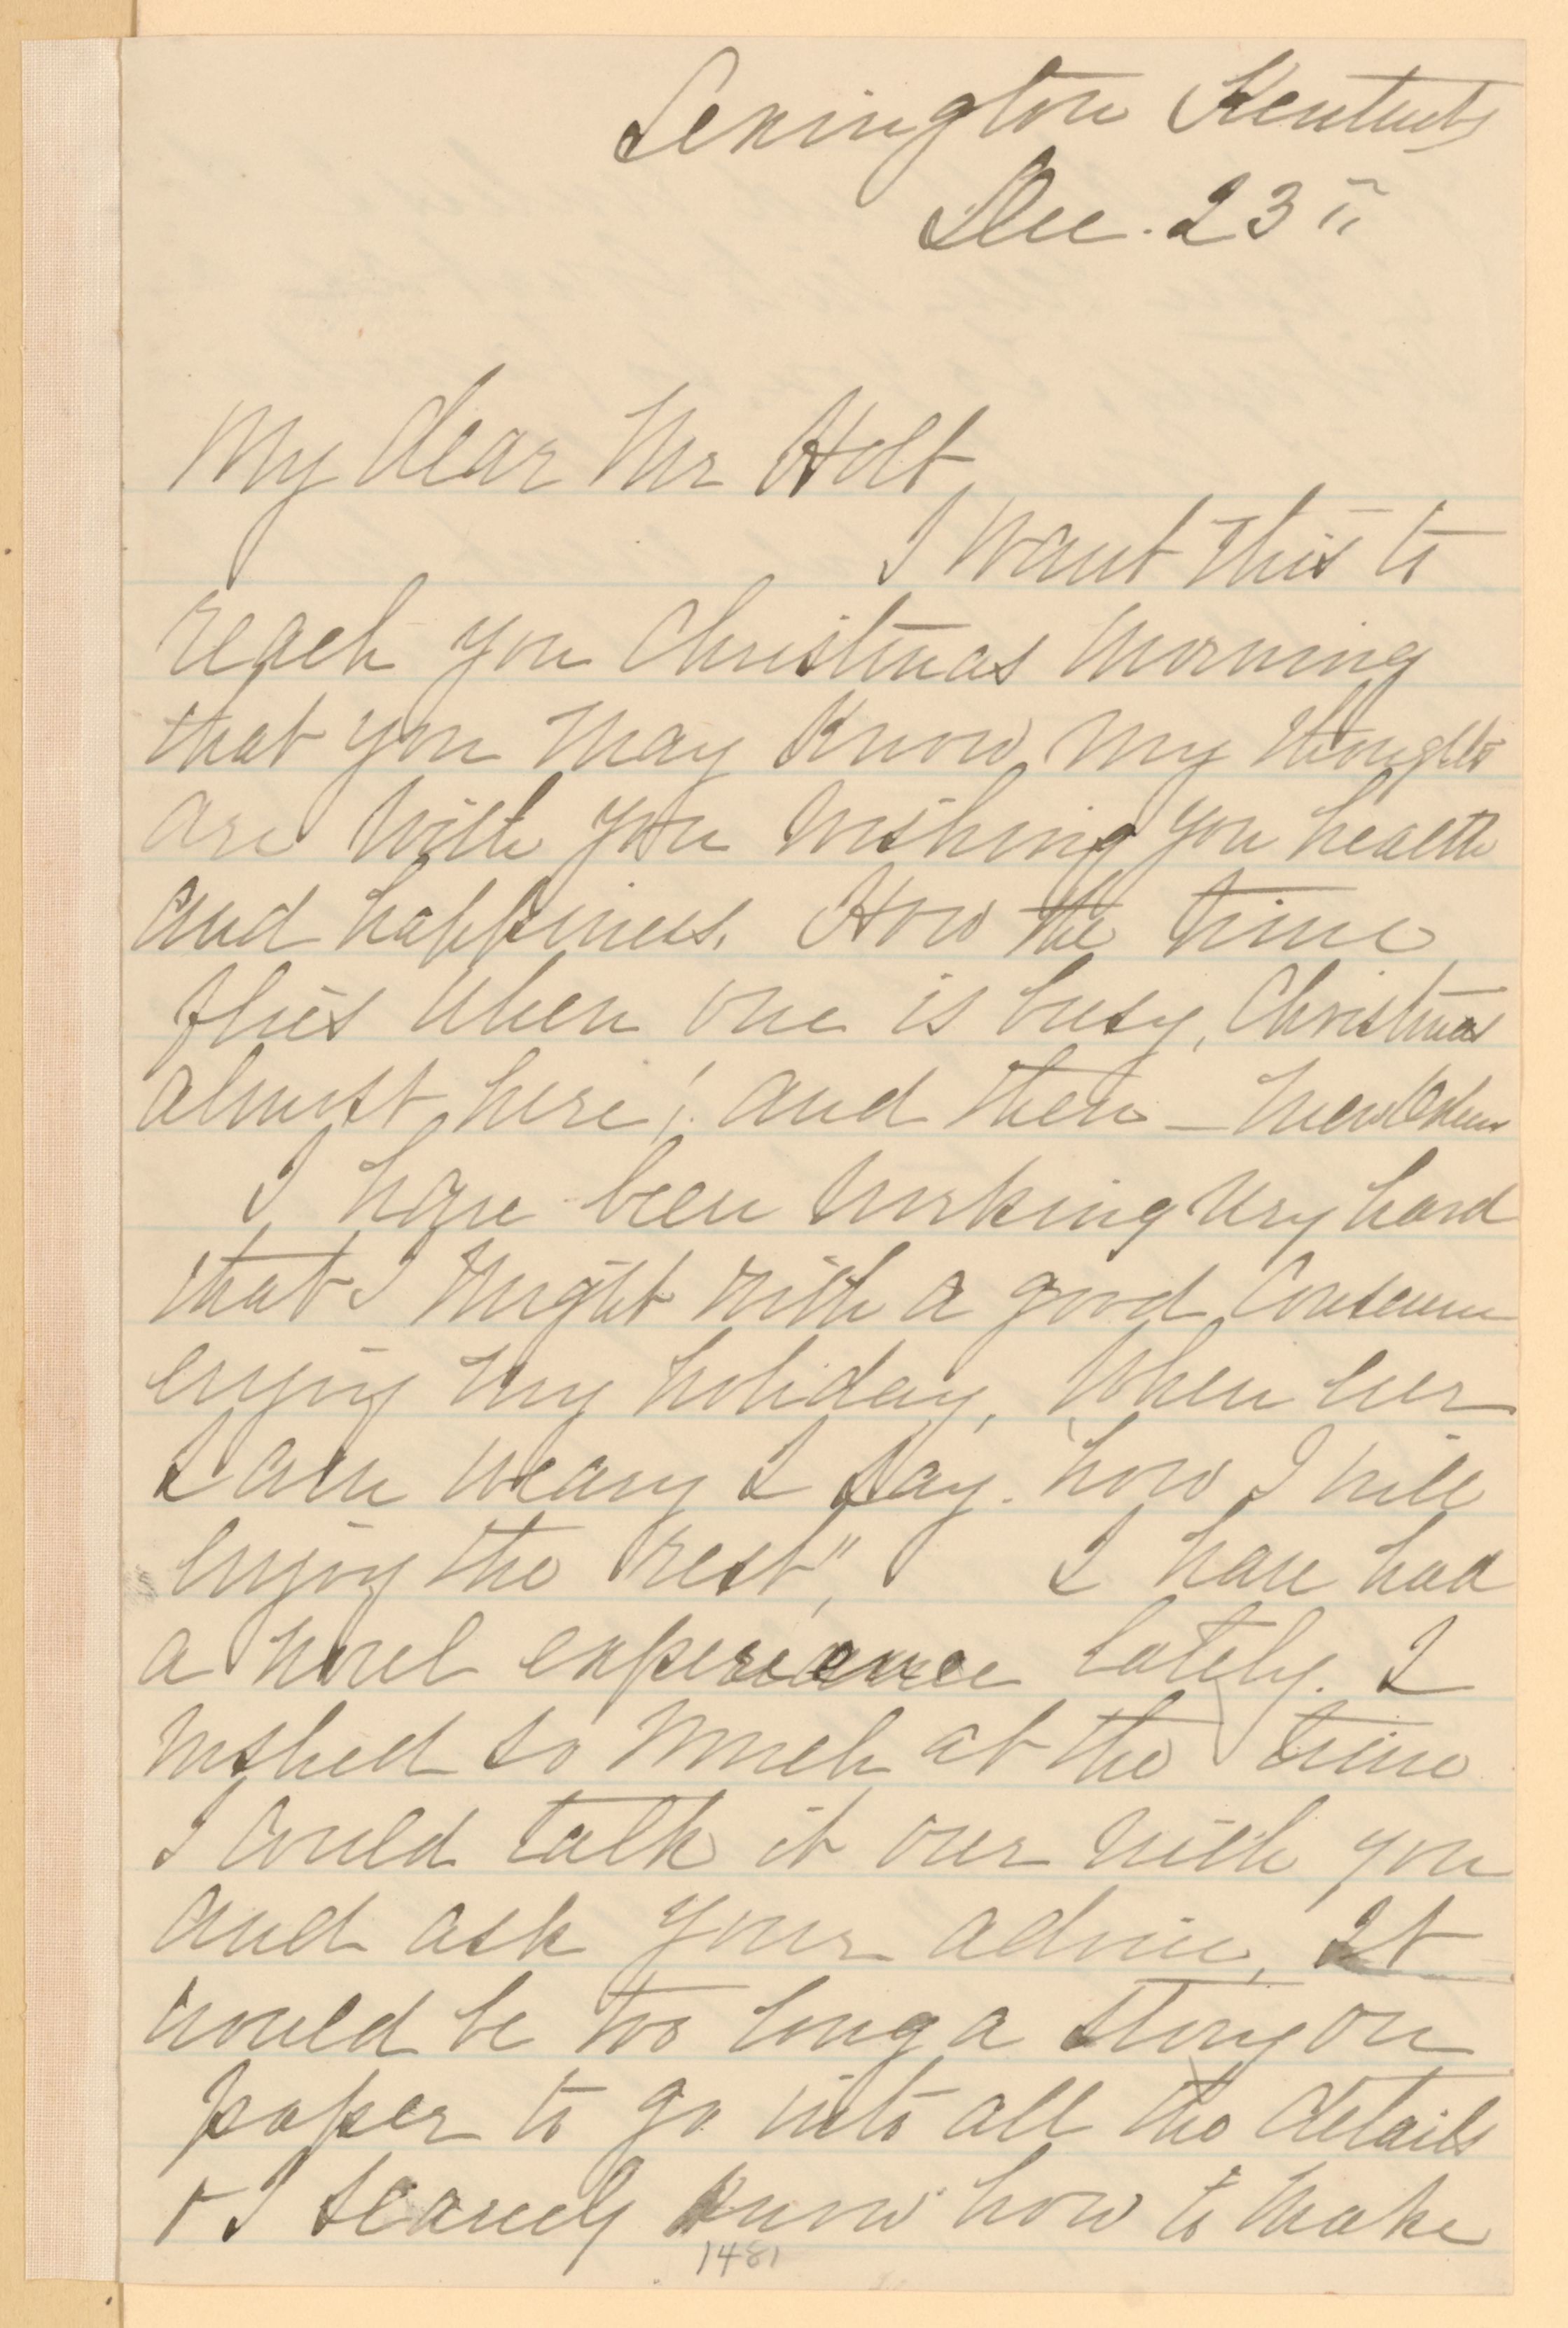 Lexington Kentucky
Dec. 23"
My dear Mr Holt
I want this to
reach you Christmas morning
that you may know my thoughts
are with you wishing you health
and happiness. How the time
flies when one is busy, Christmas
almost here! and then — New Orleans
I have been working very hard
that I might with a good Conscience
enjoy my holiday, When ever
I am weary I say. "how I will
enjoy the rest", I have had
a novel experience lately. I
wished so much at the time
I could talk it over with you
and ask your advice, It
would be too long a story on
paper to go into all the details
+ I scarcely know how to make
1481